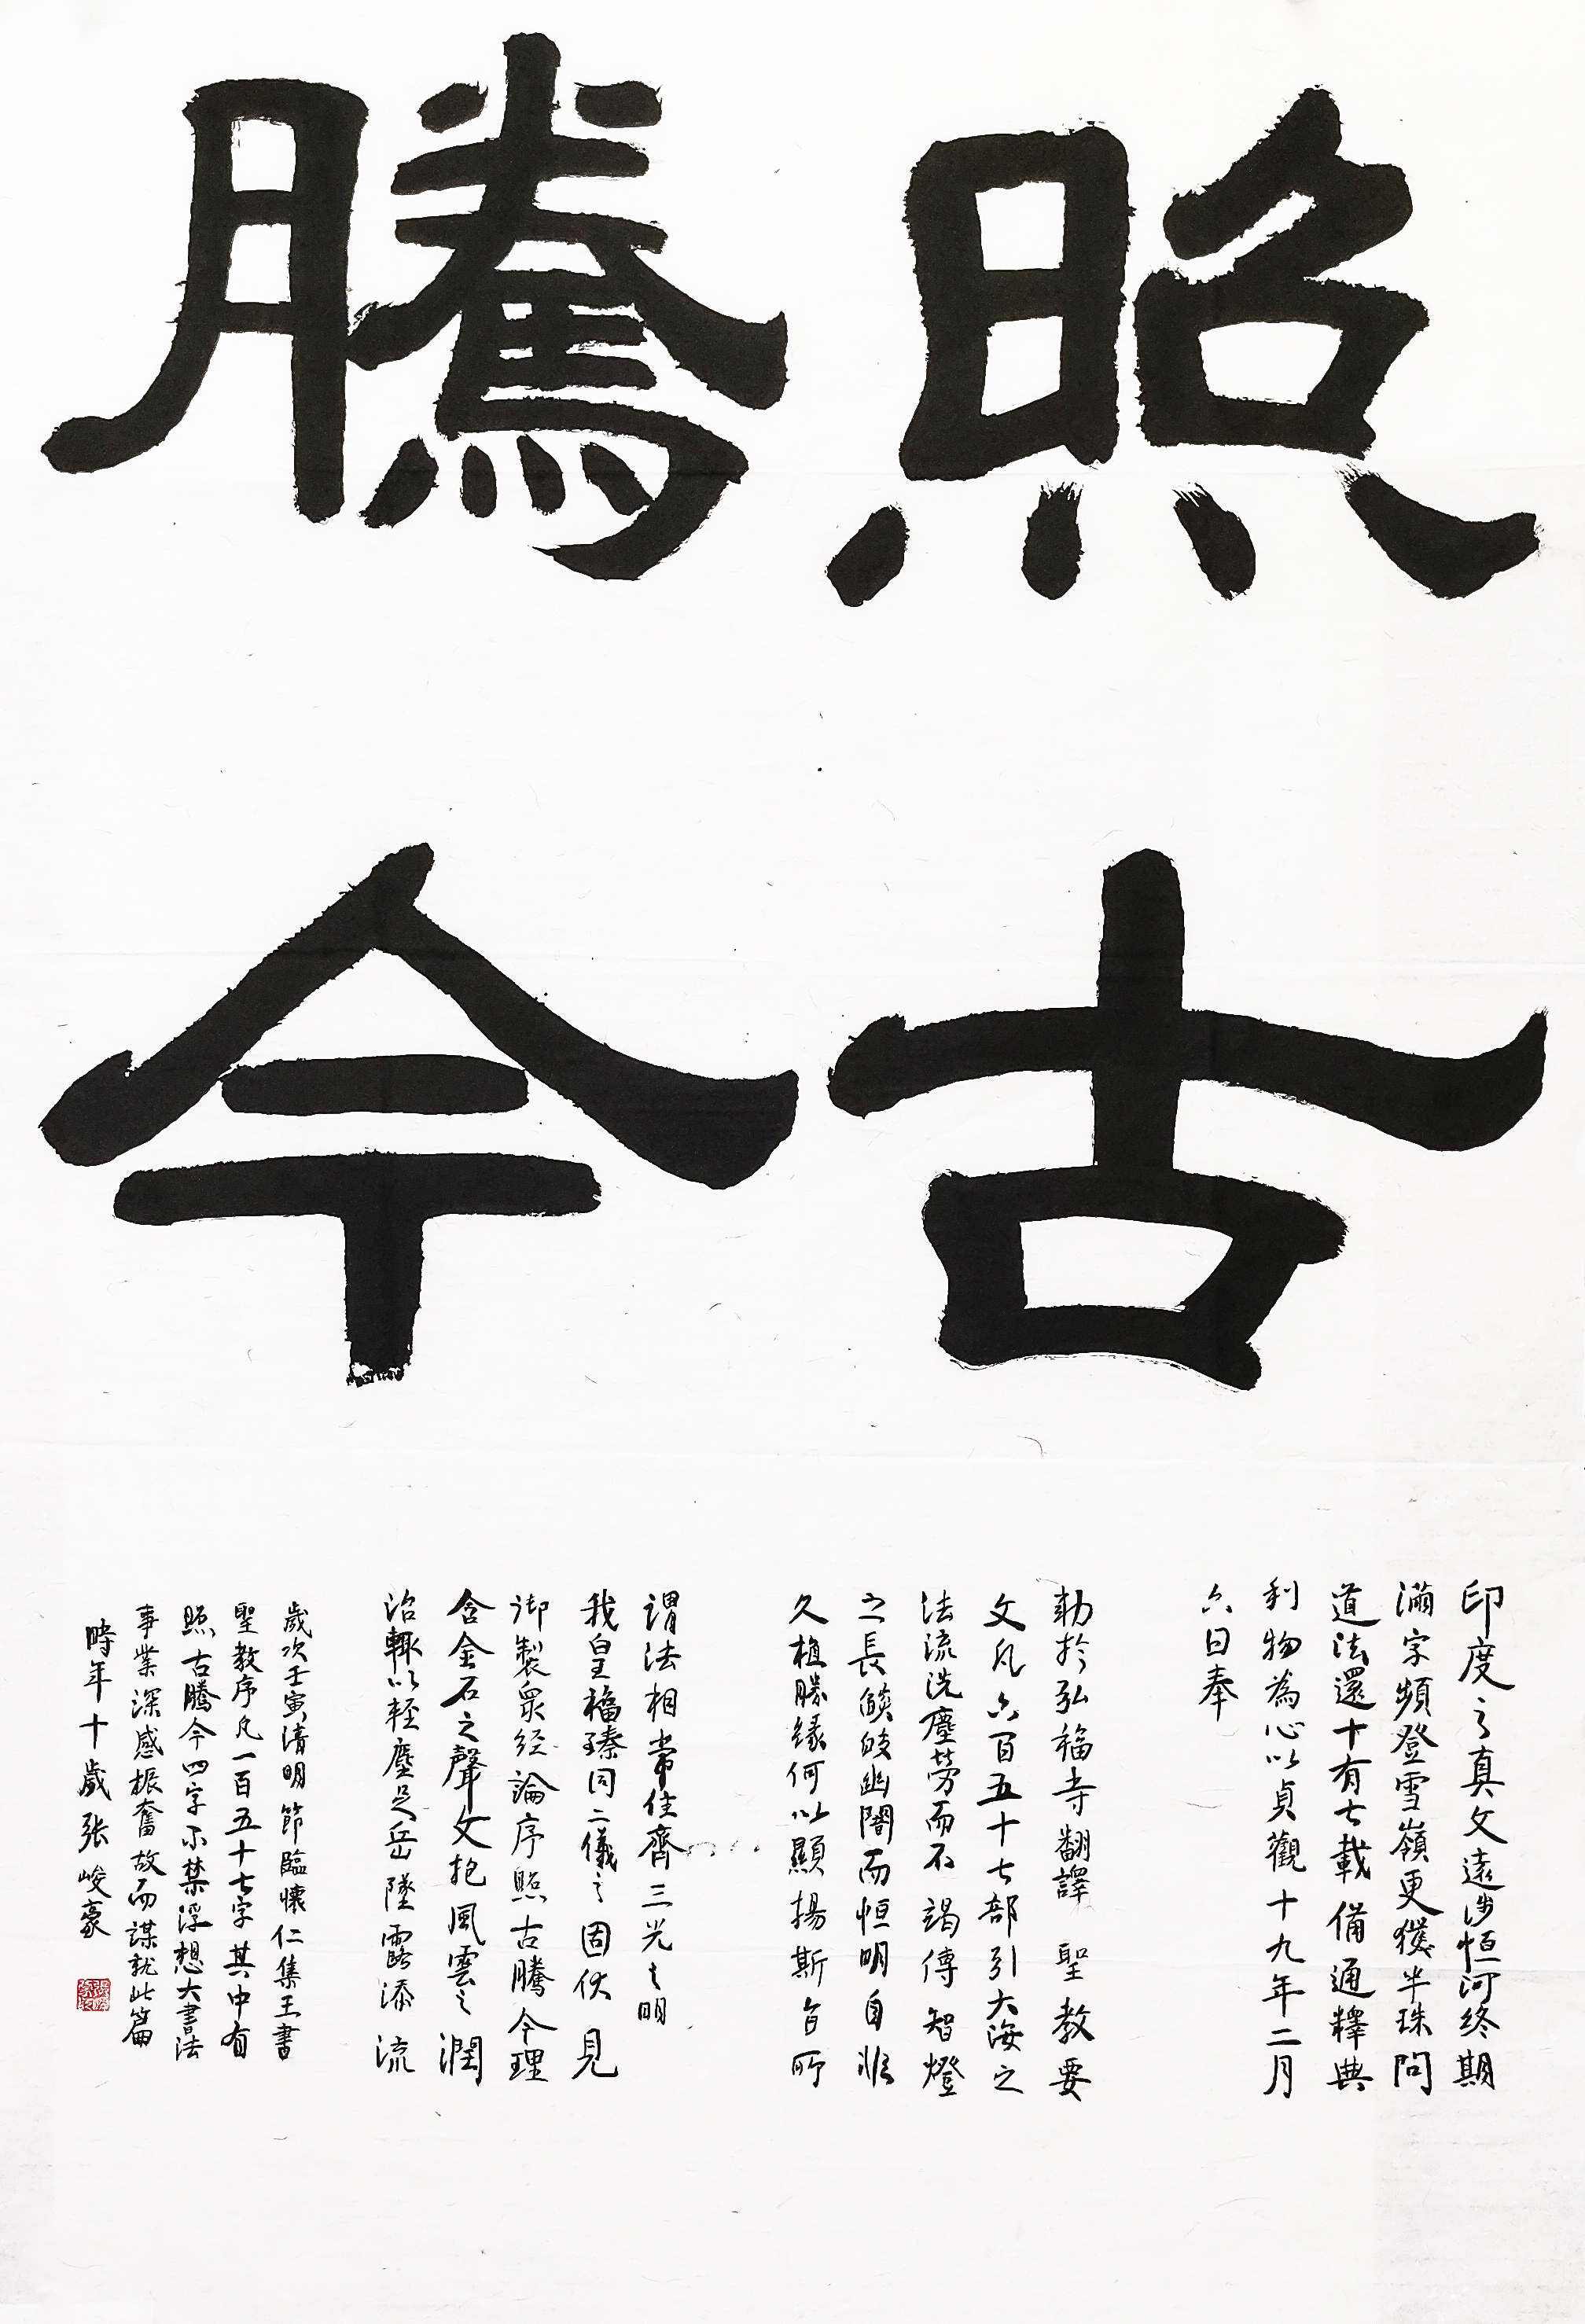 照古
騰今
印度之真文遠涉恒河終期
滿字頻登雪嶺更獲半珠問
道法還十有七載備通釋典
利物為心以貞觀十九年二月
六日奉
勅於弘福寺翻譯聖教要
文凡六百五十七部引大海之
法流洗塵勞而不竭傳智燈
之長燄皎幽闇而恒明自非
久植勝緣何以顯揚斯旨所
謂法相常住齊三光之明
我皇福臻同二儀之固伏見
御製衆經論序照古騰今理
含金石之聲文抱風雲之潤
治輒以輕塵足岳墜露添流
歲次壬寅清明節臨懷仁集王書
聖教序凡一百五十七字其中有
照古騰今四字不禁浮想大書法
事業深感振奮故而謀就此篇
時年十歲張峻豪